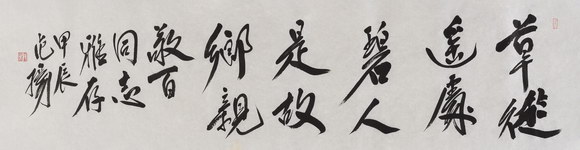 草從
遙處
碧人
是故
鄉親
敬百
同志
雅存
甲辰